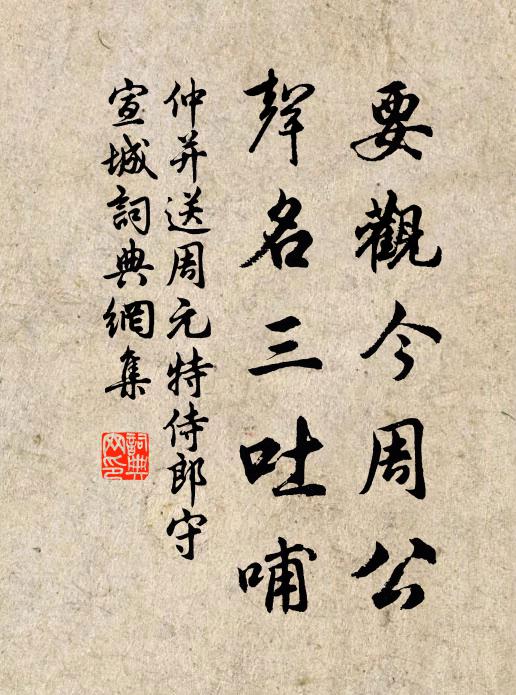 要觀今周公
聲名三吐哺
仲并送周元特侍郎守
宣城詞典網集
詞典网印